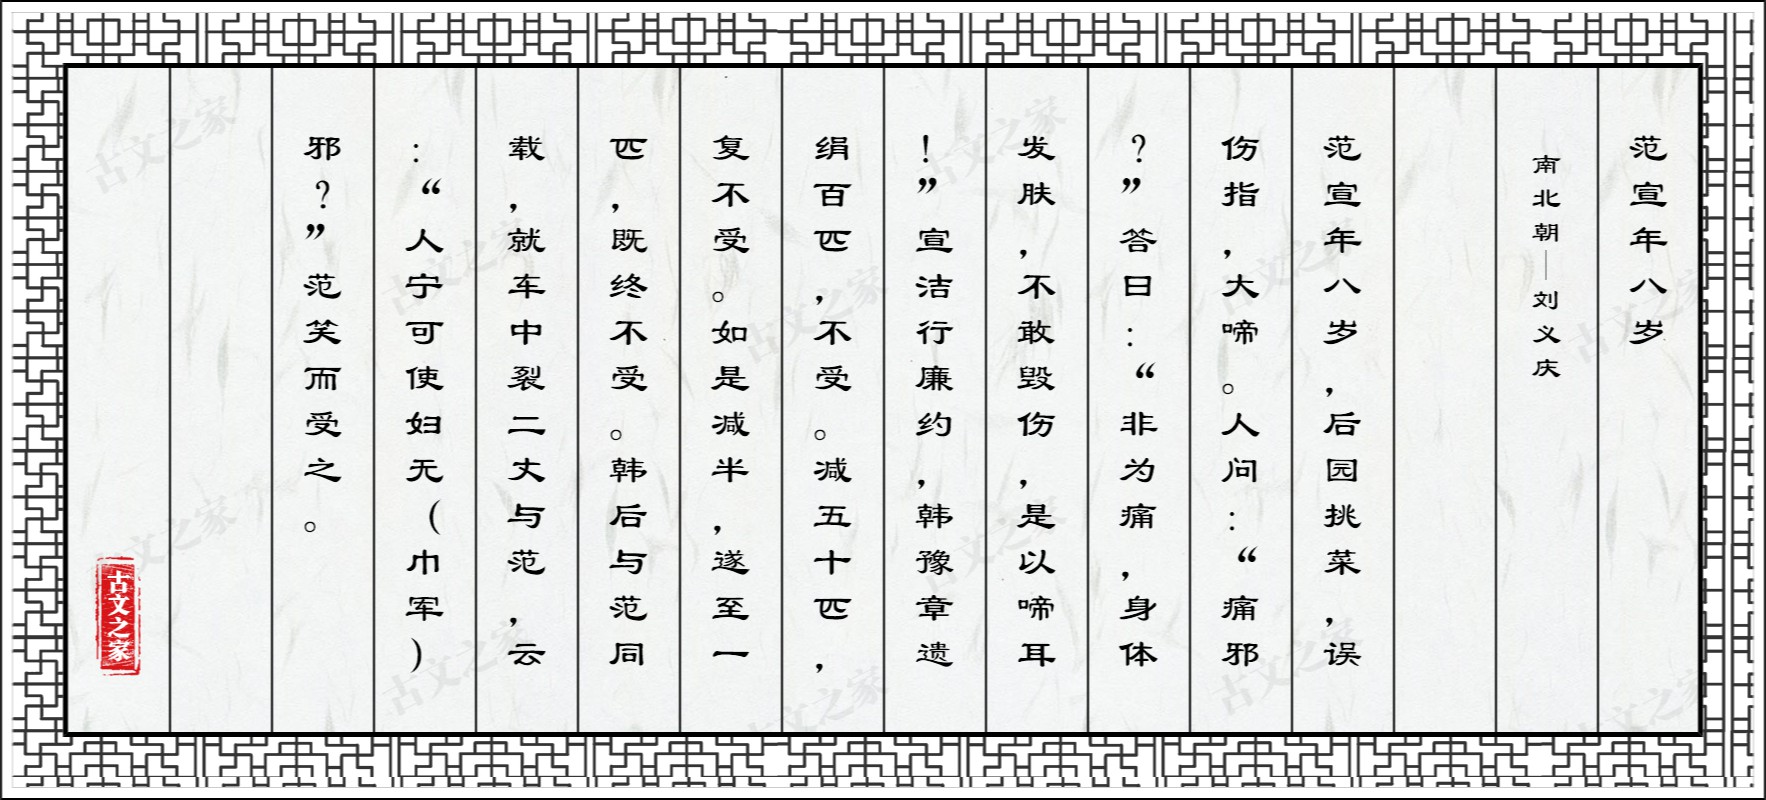 范宣年八岁
南北朝—刘义庆
范宣年八岁，后园挑菜，误
伤指，大啼。人问：“痛邪
？”答曰：“非为痛，身体
发肤，不敢毁伤，是以啼耳
！”宣洁行廉约，韩豫章遗
绢百匹，不受。减五十匹，
复不受。如是减半，遂至一
匹，既终不受。韩后与范同
载，就车中裂二丈与范，云
：“人宁可使妇无（巾军）
邪？”范笑而受之。
古文之家